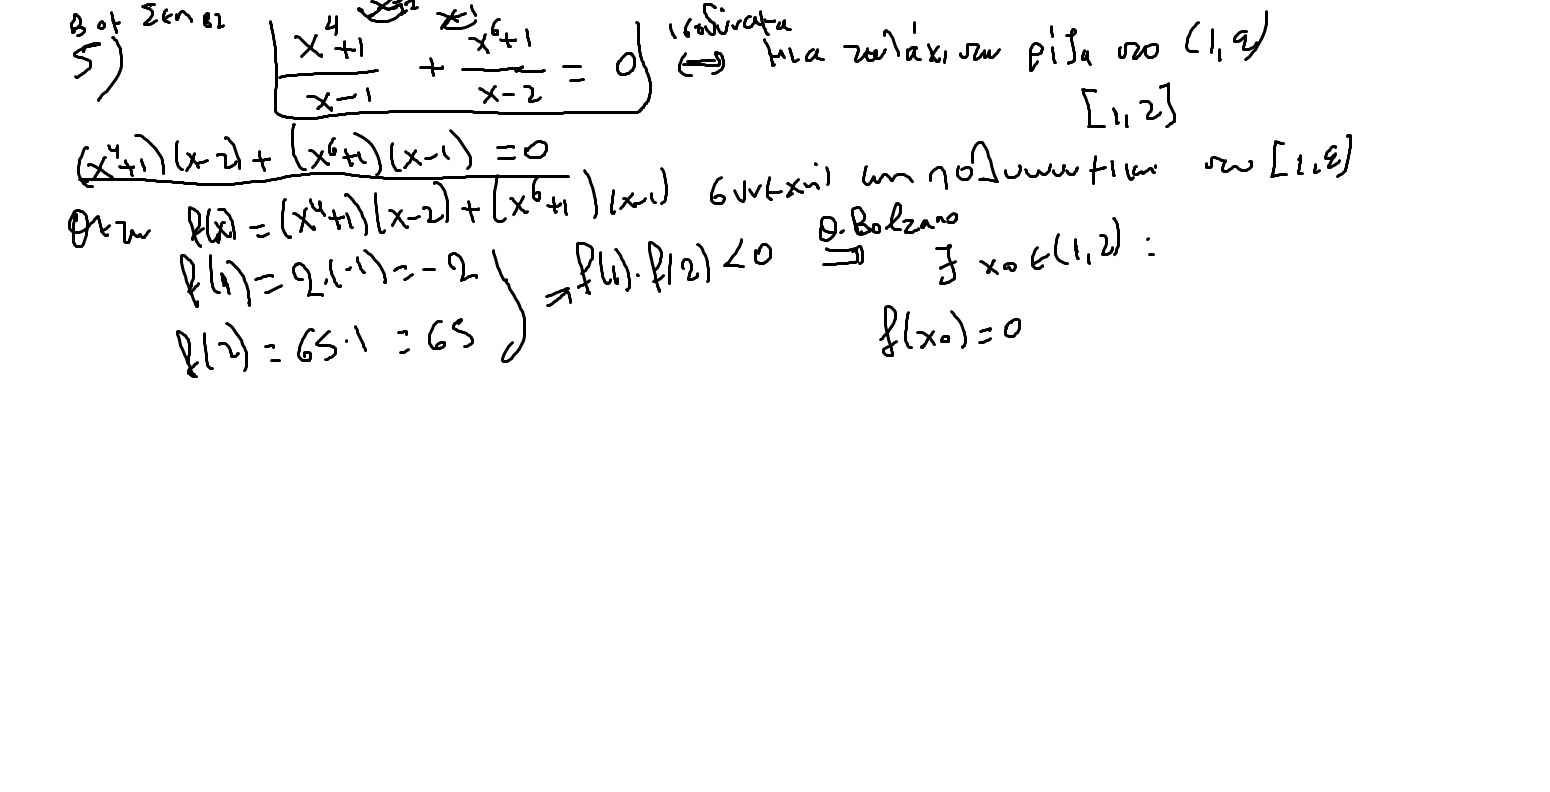 Β ομ Σελ 82
5) \frac{x^4+1}{x-1} + \frac{x^6+1}{x-2} = 0 ισοδύναμα ⇔ μια τουλάχιστον ρίζα στο (1,2)
[1,2]
(x^4+1)(x-2) + (x^6+1)(x-1) = 0
Θέτω f(x) = (x^4+1)(x-2) + (x^6+1)(x-1) συνεχής ως πολυωνυμική στο [1,2]
f(1) = 2·(-1) = -2
f(2) = 65·1 = 65
⇒ f(1)·f(2) < 0 Θ. Bolzano ⇒ ∃ x_0 ∈ (1,2) :
f(x_0) = 0